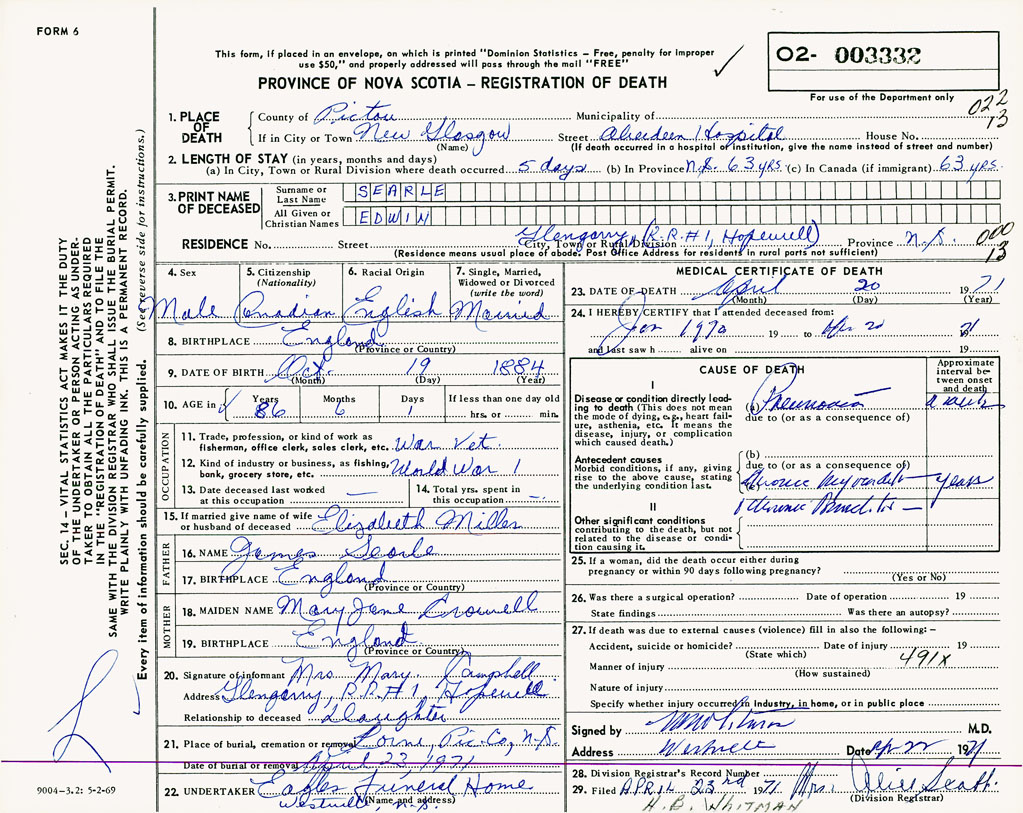 FORM 6
This form, if placed in an envelope, on which is printed "Dominion Statistics – Free, penalty for improper
use $50," and properly addressed will pass through the mail "FREE"
✓
O2- 003332
PROVINCE OF NOVA SCOTIA – REGISTRATION OF DEATH
For use of the Department only
022
13
1. PLACE OF DEATH
County of Pictou Municipality of
If in City or Town New Glasgow Street Aberdeen Hospital House No.
(Name) (If death occurred in a hospital or institution, give the name instead of street and number)
2. LENGTH OF STAY (in years, months and days)
(a) In City, Town or Rural Division where death occurred 5 days (b) In Province N.S. 63 yrs. (c) In Canada (if immigrant) 63 yrs.
3. PRINT NAME OF DECEASED
Surname or Last Name SEARLE
All Given or Christian Names EDWIN
Glengarry, (R.R#1, Hopewell)
RESIDENCE No. Street City, Town or Rural Division Province N.S.
000
13
(Residence means usual place of abode. Post Office Address for residents in rural parts not sufficient)
4. Sex
Male
5. Citizenship (Nationality)
Canadian
6. Racial Origin
English
7. Single, Married, Widowed or Divorced (write the word)
Married
8. BIRTHPLACE England
(Province or Country)
9. DATE OF BIRTH Oct. 19 1884
(Month) (Day) (Year)
10. AGE in
Years Months Days If less than one day old
86 6 1 hrs. or min.
OCCUPATION
11. Trade, profession, or kind of work as fisherman, office clerk, sales clerk, etc. War Vet.
12. Kind of industry or business, as fishing, bank, grocery store, etc. World War 1
13. Date deceased last worked at this occupation —
14. Total yrs. spent in this occupation —
15. If married give name of wife or husband of deceased Elizabeth Miller
FATHER
16. NAME James Searle
17. BIRTHPLACE England
(Province or Country)
MOTHER
18. MAIDEN NAME Mary Jane Crowell
19. BIRTHPLACE England
(Province or Country)
20. Signature of informant Mrs Mary Campbell
Address Glengarry, R.R#1, Hopewell
Relationship to deceased Daughter
21. Place of burial, cremation or removal Lorne, Pic. Co, N.S.
Date of burial or removal April 23, 1971
22. UNDERTAKER Eagles Funeral Home
Westville, N.S. (Name and address)
MEDICAL CERTIFICATE OF DEATH
23. DATE OF DEATH April 20 1971
(Month) (Day) (Year)
24. I HEREBY CERTIFY that I attended deceased from:
Jan 1970 19 to Apr 20 1971
and last saw h alive on 19
CAUSE OF DEATH
Approximate interval between onset and death
I
Disease or condition directly leading to death (This does not mean the mode of dying, e.g., heart failure, asthenia, etc. It means the disease, injury, or complication which caused death.)
(a) Pneumonia
due to (or as a consequence of)
Antecedent causes
Morbid conditions, if any, giving rise to the above cause, stating the underlying condition last.
(b)
due to (or as a consequence of)
(c) Chronic Myocarditis – years
+ Chronic Bronchitis –
II
Other significant conditions contributing to the death, but not related to the disease or condition causing it.
25. If a woman, did the death occur either during
pregnancy or within 90 days following pregnancy?
(Yes or No)
26. Was there a surgical operation? Date of operation 19
State findings Was there an autopsy?
27. If death was due to external causes (violence) fill in also the following: –
Accident, suicide or homicide? Date of injury 19
(State which)
491X
Manner of injury
(How sustained)
Nature of injury
Specify whether injury occurred in industry, in home, or in public place
Signed by M.D.
Address Westville Date Apr 22 1971
28. Division Registrar's Record Number
29. Filed APRIL 23rd 1971 Mrs. Alice Scott
(Division Registrar)
H.B. WHITMAN
SEC. 14 – VITAL STATISTICS ACT MAKES IT THE DUTY
OF THE UNDERTAKER OR PERSON ACTING AS UNDER-
TAKER TO OBTAIN ALL THE PARTICULARS REQUIRED
IN THE "REGISTRATION OF DEATH" AND TO FILE THE
SAME WITH THE DIVISION REGISTRAR WHO SHALL ISSUE THE BURIAL PERMIT.
WRITE PLAINLY WITH UNFADING INK. THIS IS A PERMANENT RECORD.
Every item of information should be carefully supplied. (See reverse side for instructions.)
9004–3.2: 5-2-69